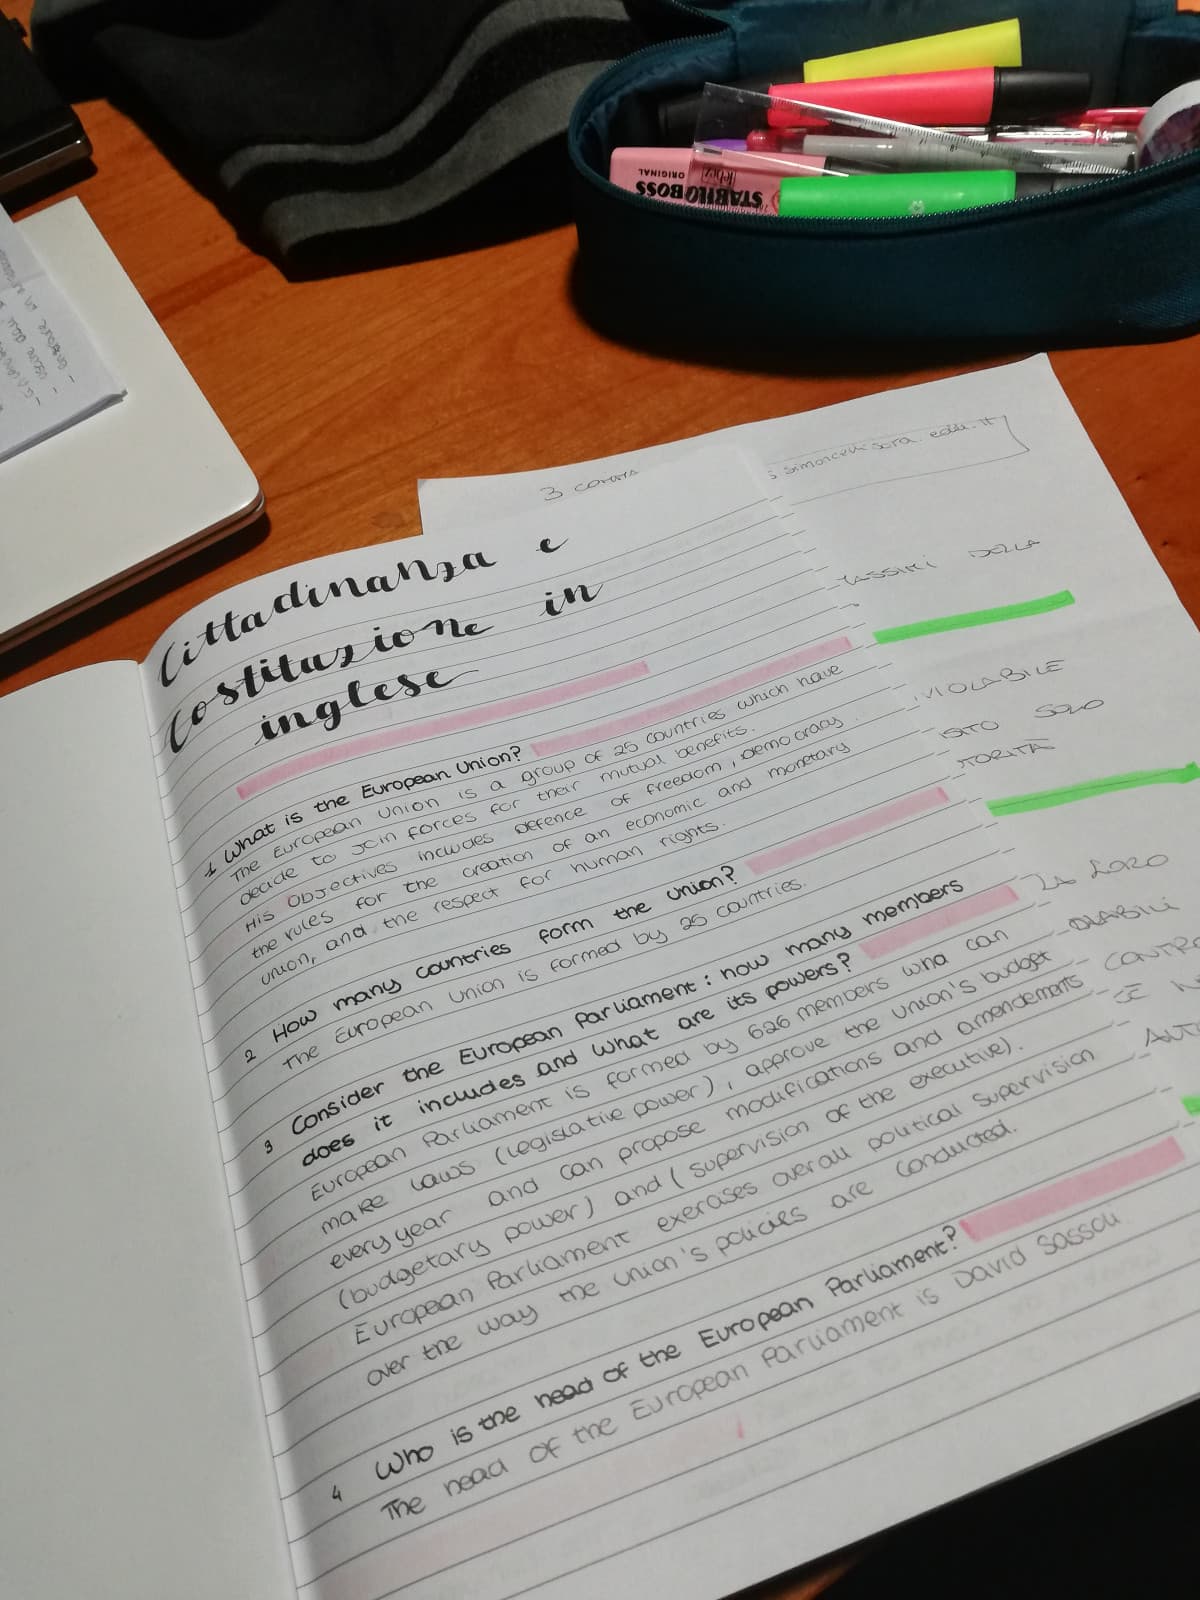 3 comma
simoncelli.sora.edu.it
Cittadinanza e
costituzione in
inglese
1 What is the European Union?
The European Union is a group of 25 countries which have
decide to join forces for their mutual benefits.
His objectives includes defence of freedom, democracy
the rules for the creation of an economic and monetary
union, and the respect for human rights.
2 How many countries form the Union?
The European Union is formed by 25 countries.
3 Consider the European Parliament: how many members
does it includes and what are its powers?
European Parliament is formed by 626 members who can
make laws (legislative power), approve the Union's budget
every year and can propose modifications and amendements
(budgetary power) and (supervision of the executive).
European Parliament exerases overall political supervision
over the way the Union's policies are conducted.
4 Who is the head of the European Parliament?
The head of the European Parliament is David Sassoli
DELLA
VIOLABILE
SOLO
TORITÀ
LORO
STABILO BOSS
ORIGINAL